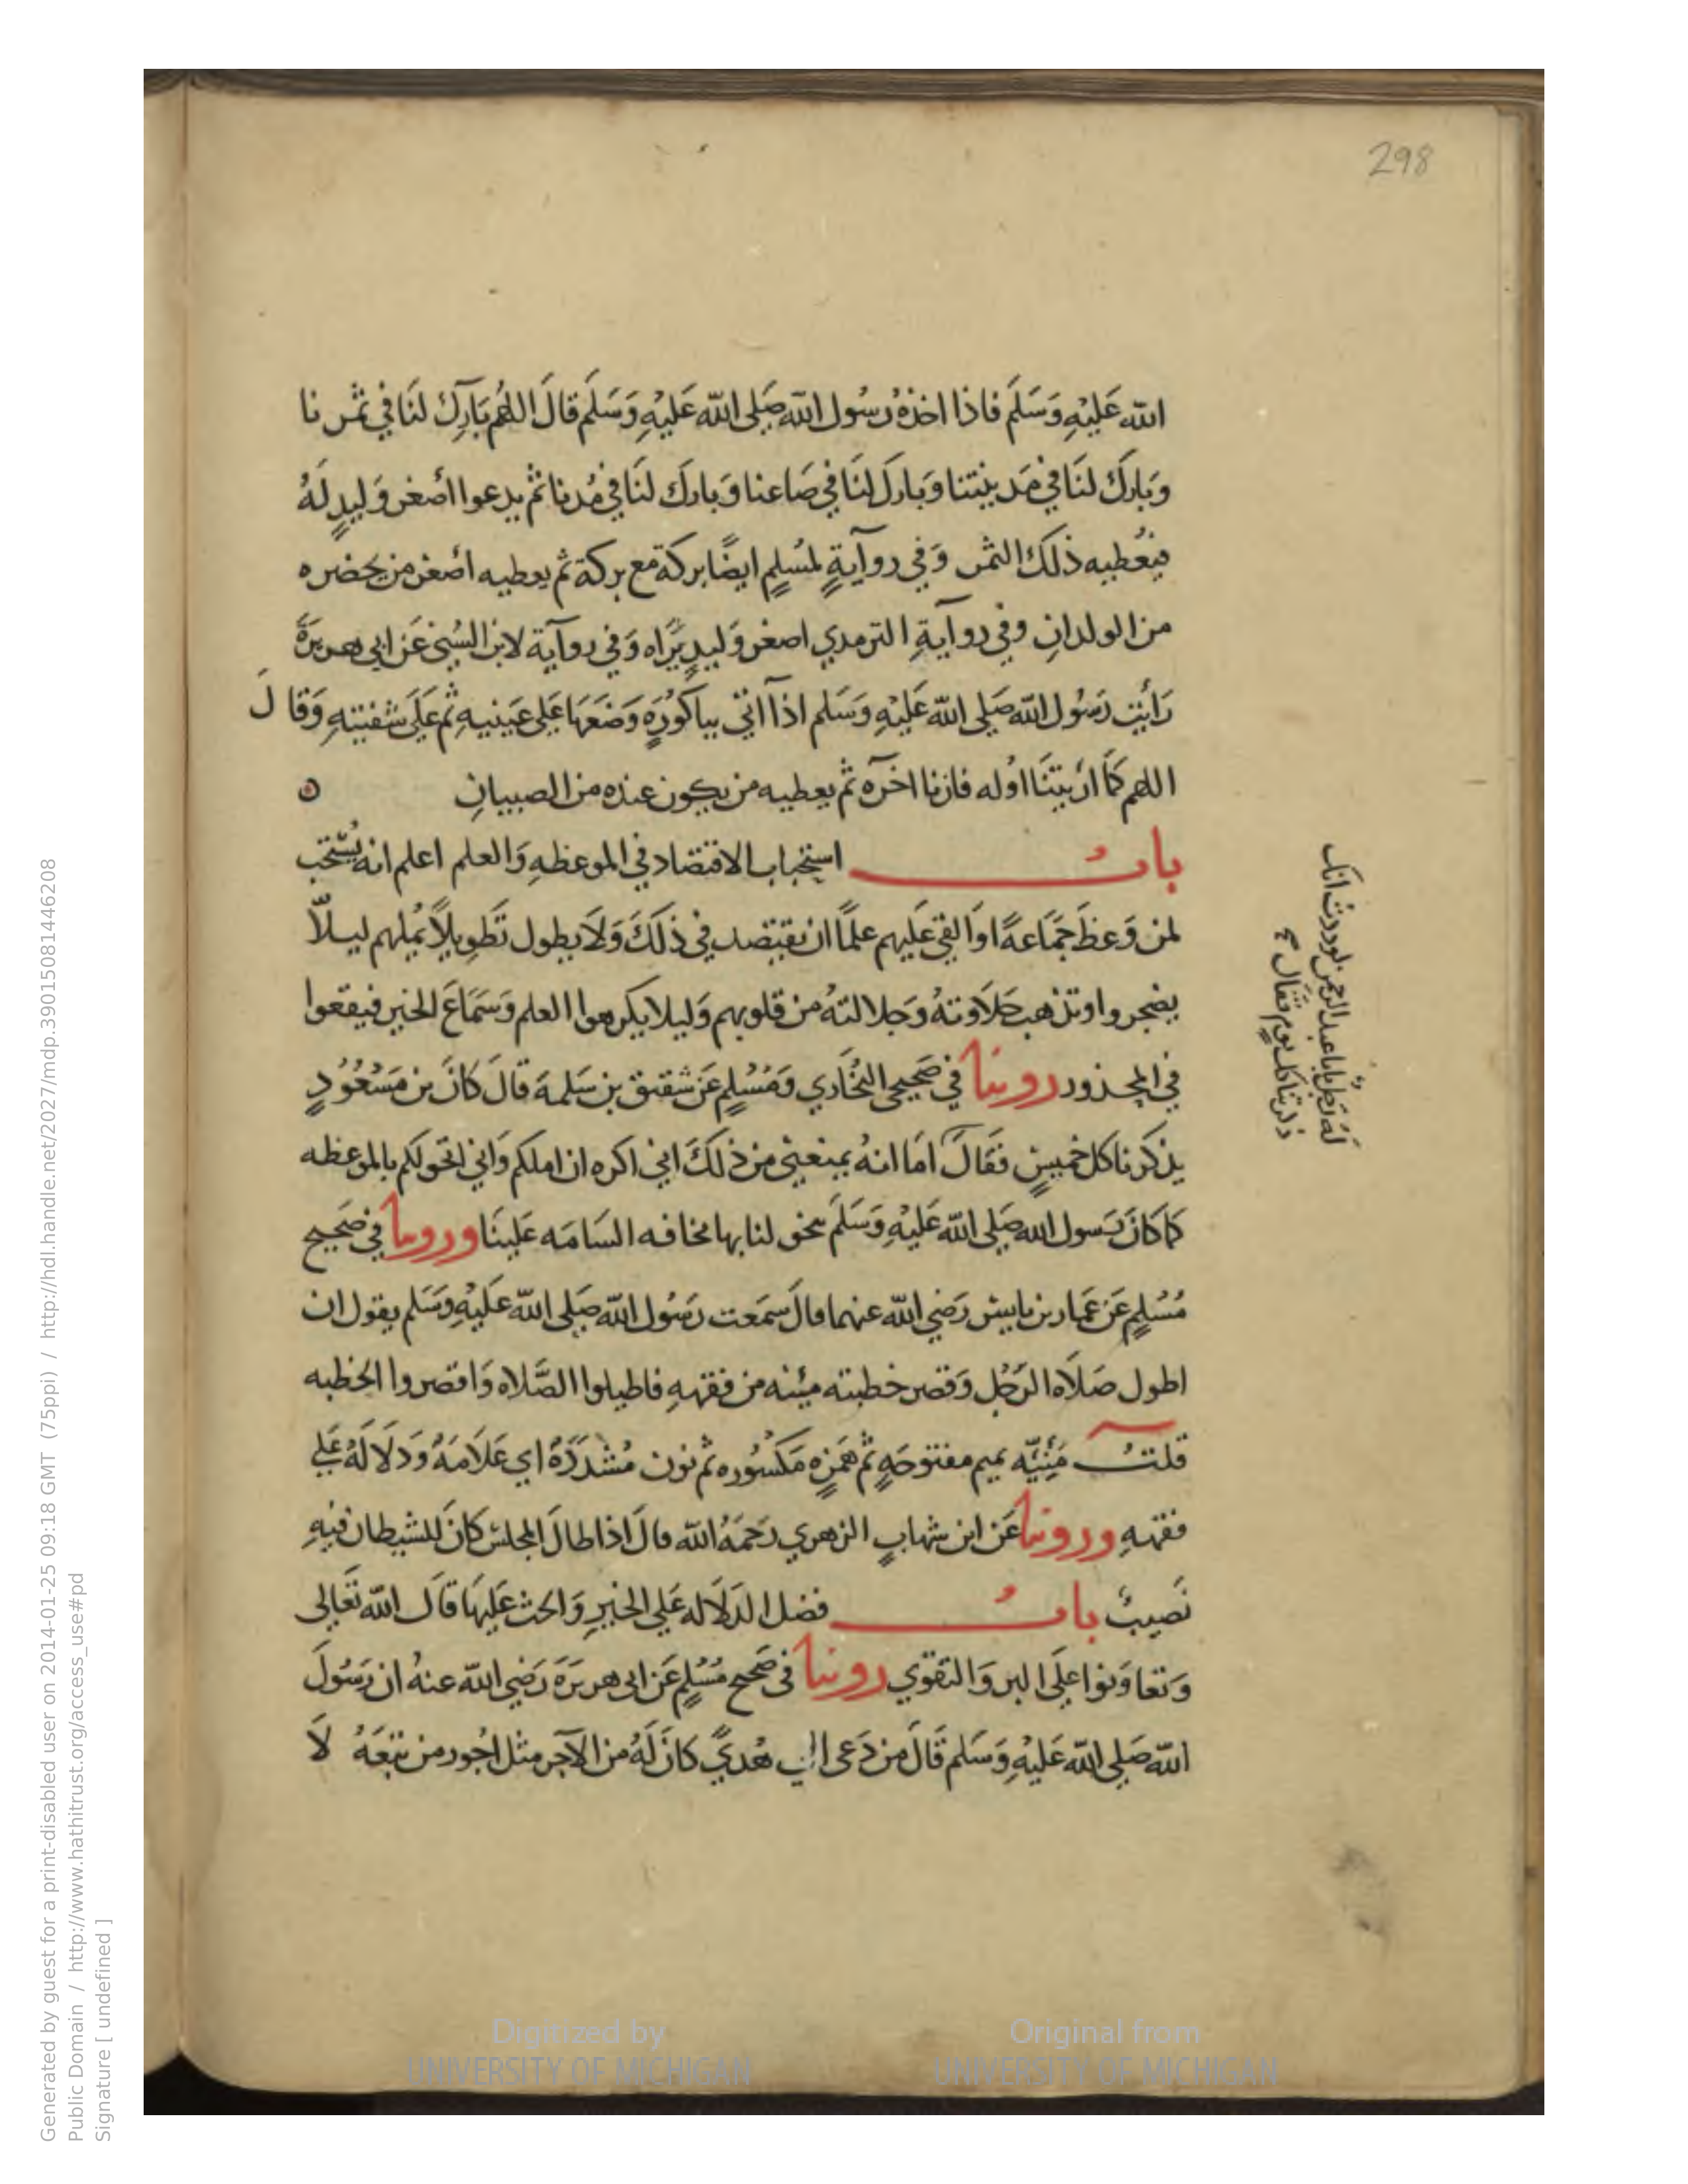 298
الله عَليْهِ وَسَلَم فاذا اخذهُ رسُول الله صَلى الله عَليْهِ وَسَلَم قالَ اللهُم بَارِك لنَا في ثمرنا
وَبارَك لنَا في مَدينتنا وَبارَك لنَا في صَاعنا وَبارك لنَا في مُدنا ثم يدعوا أصغر وَليدٍ لهُ
فيُعطيه ذلك الثمر وَفي روآيةٍ لمسُلمٍ ايضًا بركة مع بركة ثم يعطيه أصغر من يحضره
من الولدانِ وفي روآيةِ الترمدي اصغر وَليدٍ يَراه وَفي روآية لابن السُني عَن ابي هريرَة
رَأيت رَسُول الله صَلى الله عَليْهِ وَسَلم اذا اتي بباكُورَهٍ وَضعَهَا عَلى عَينيهِ ثم عَلَى شفتيهِ وَقالَ
اللهم كمَا ارَيتنَا اوُله فارنا اخَره ثم يعطيه من يكون عنده من الصبيانِ
بابُ استحباب الاقتصاد في الموعظهِ وَالعلم اعلم انه يُستحَب
لمن وَعظَ جمَاعةً اوَالقي عَليهم علمًا ان يقتصد في ذلكَ وَلاَ يطول تَطوِيلاً يُملهم ليلاّ
يضجروا وتذهب حَلاَوتهُ وَجلالتهُ من قلوبهم وَليلا يكرهوا العلم وَسَمَاعَ الخير فيقعوا
في المحذور روينا في صَحيحي البُخَاري وَمُسُلمٍ عَن شقيق بن سَلمةَ قالَ كانَ بن مَسْعُودٍ
يذكرنا كل خميسٍ فقَالَ امَا انهُ يمنعني من ذلكَ اني اكره ان املكم وَاني اتخولكم بالموعظه
كما كانَ رَسول الله صَلى الله عَليْهِ وَسَلَم يتخولنا بها مخافه السَامَه عَلينَا وروينا في صَحيح
مُسُلمٍ عَن عَمار بن يابسر رَضي الله عنهما قالَ سَمَعت رَسُول الله صَلى الله عَليْهِ وَسَلم يقول ان
اطول صَلاَه الرَجُل وَقصر خطبته مئنه من فقههِ فاطيلوا الصَّلاه وَاقصروا الخطبه
قلتُ مَئِنّه بميم مفتوحَهٍ ثم همَزهٍ مَكسُوره ثم نون مُشدَدَةُ اي عَلاَمَةُ وَدلالَةُ عَلي
فقههِ وروينا عَن ابن شهابٍ الزهري رَحَمَهُ الله قالَ اذا طالَ المجلس كانَ للشيطان فيهِ
نَصيبُ بابُ فضل الدَلاله عَلي الخيرِ وَالحث عَليهَا قالَ الله تَعَالى
وَتعَاوَنوا علَى البر وَالتقوي روينا في صَحيح مُسُلمٍ عَن ابي هريرَةَ رَضي الله عنهُ ان رَسُولَ
الله صَلي الله عَليْهِ وَسَلم قَالَ من دَعى الي هُديً كانَ لَهُ من الآجر مثل اجُور من تبعَهُ لاَ
لهُ رَجُل يابا عبد الرحمن لوددت انك
ذكرتنا كل يومٍ فقال
Generated by guest for a print-disabled user on 2014-01-25 09:18 GMT (75ppi) / http://hdl.handle.net/2027/mdp.39015081446208
Public Domain / http://www.hathitrust.org/access_use#pd
Signature [ undefined ]
Digitized by
UNIVERSITY OF MICHIGAN
Original from
UNIVERSITY OF MICHIGAN